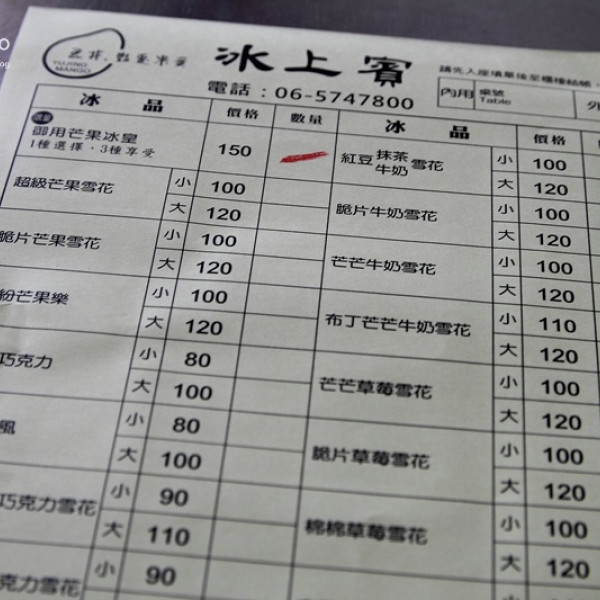 YUJING
MANGO
冰上賓
電話：06-5747800
請先入座填單後至櫃檯結帳，
內用 桌號 Table
外
冰 品 價格 數量 冰 品 價格
御用芒果冰皇 150
1種選擇．3種享受
紅豆 抹茶 牛奶 雪花 小 100
大 120
超級芒果雪花 小 100
大 120
脆片牛奶雪花 小 100
大 120
脆片芒果雪花 小 100
大 120
芒芒牛奶雪花 小 100
大 120
紛芒果樂 小 100
大 120
布丁芒芒牛奶雪花 小 110
大 120
巧克力 小 80
大 100
芒芒草莓雪花 小 100
大 120
風 小 80
大 100
脆片草莓雪花 小 100
大 120
巧克力雪花 小 90
大 110
棉棉草莓雪花 小 100
大 120
克力雪花 小 90